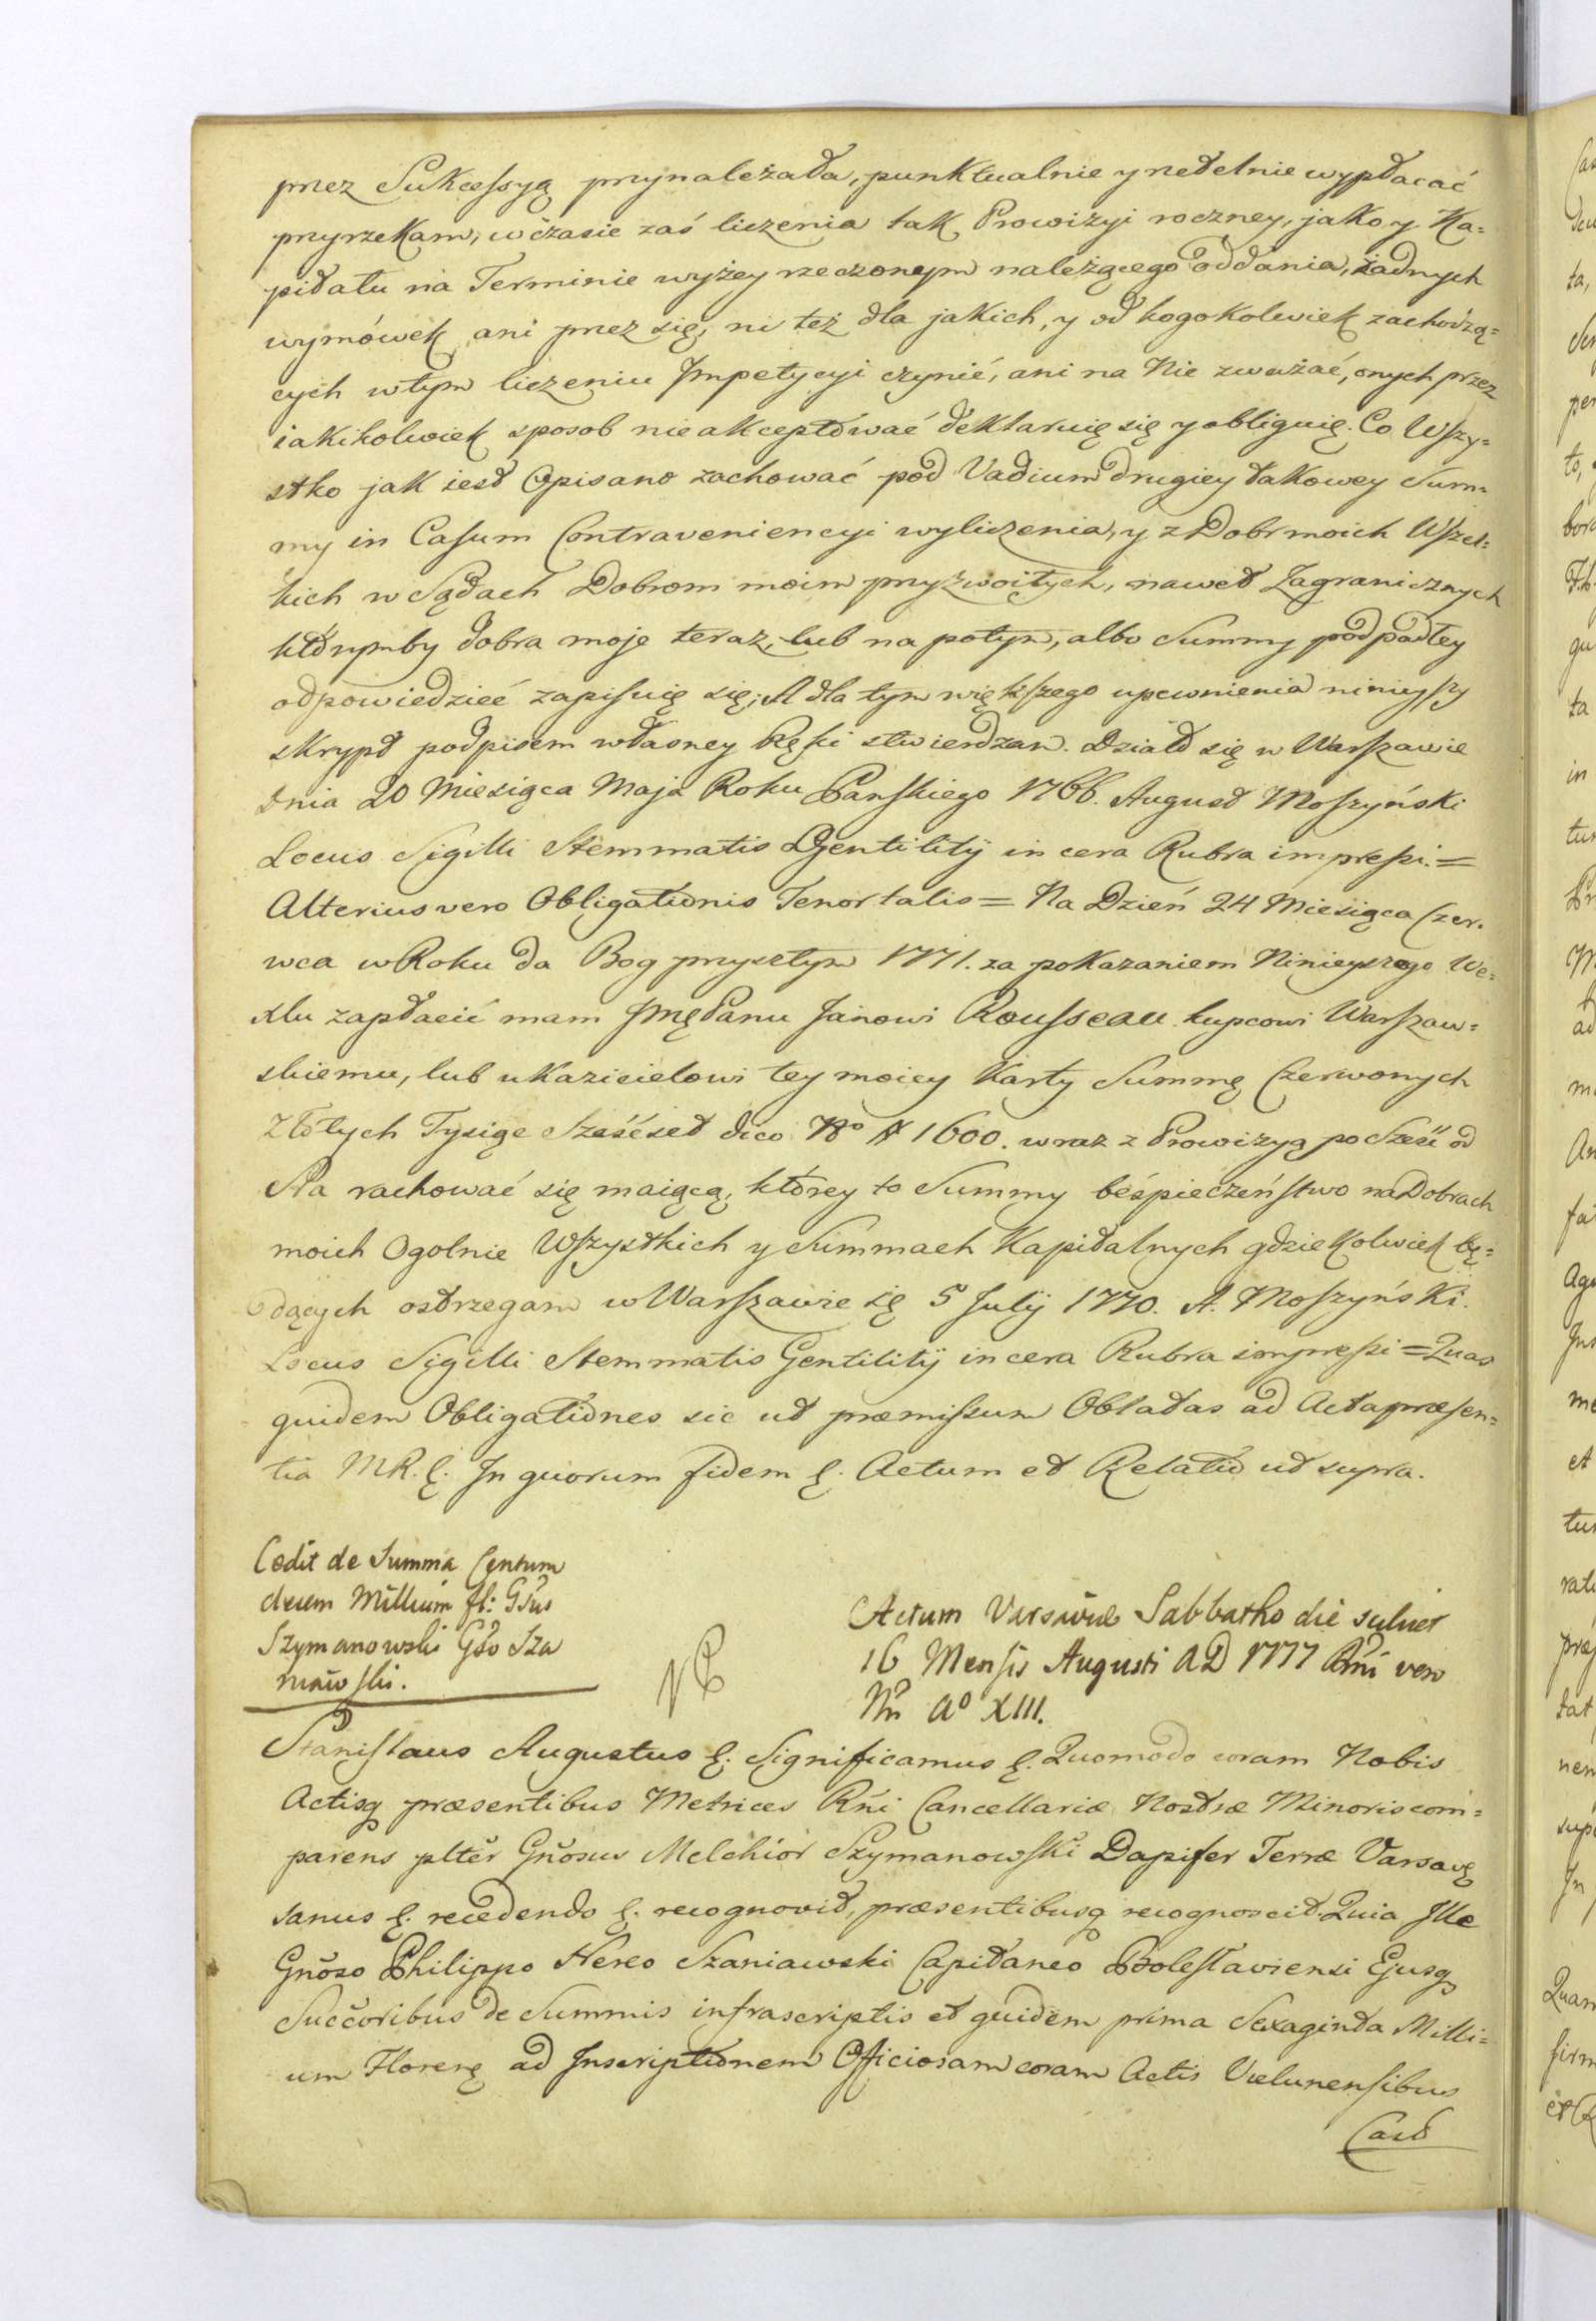 przez Sukcessyą przynależała, punktualnie y rzetelnie wypłacać
przyrzekam, w czasie zaś liczenia tak Prowizyi roczney, jako y Ka=
pitału na Terminie wyżey rzeczonym należącego oddania, żadnych
wymówek ani przez się, ni też dla jakich, y od kogokolwiek zachodzą=
cych w tym liczeniu Impetycyi czynić, ani na Nie zważać, onych przez
iakikolwiek sposob nie akceptować deklaruię się y obliguię. Co Wszy=
stko jak iest Opisano zachować pod Vadium drugiey takowey Sum=
my in Casum Contraveniencyi wyliczenia, y z Dobr moich Wszel=
kich w Sądach Dobrom moim przyzwoitych, nawet Zagranicznych
którymby dobra moje teraz, lub na potym, albo Summy podpadłey
odpowiedzieć zapisuię się; A dla tym większego upewnienia ninieyszy
skrypt podpisem własney Ręki stwierdzam. Działo się w Warszawie
dnia 20 Miesiąca Maja Roku Panskiego 1766. August Moszyński
Locus Sigilli Stemmatis Gentilitij in cera Rubra impressi.=
Alterius vero Obligationis Tenor talis= Na Dzień 24 Miesiąca Czer=
wca w Roku da Bog przyszłym 1771. za pokazaniem Ninieyszego We=
xlu zapłacić mam Jmę Panu Janowi Rousseau kupcowi Warszaw=
skiemu, lub ukazicielowi tey moiey Karty Summę Czerwonych
Złotych Tysiąc Sześćset dico No # 1600. wraz z Prowizyą po Sześć od
Sta rachować się maiącą, ktorey to Summy beśpieczeństwo na Dobrach
moich Ogolnie Wszystkich y Summach Kapitalnych gdziekolwiek bę=
dących ostrzegam w Warszawie się 5 Julij 1770. A. Moszyński.
Locus Sigilli Stemmatis Gentilitij in cera Rubra impressi=Quas
quidem Obligationes sic ut præmissum Oblatas ad Acta præsen=
tia MR. &. In quorum fidem &. Actum et Relatio ut supra.
Cedit de Summa Centum
decem Millium fl: Gsus
Szymanowski Gso Sza
niawski.
Actum Varsaviæ Sabbatho die scilicet
16 Mensis Augusti AD 1777 Rni vero
Nri Ao XIII.
Stanislaus Augustus &. Significamus &. Quomodo coram Nobis
Actisq præsentibus Metrices Rni Cancellariæ Nostræ Minoris com=
parens plter Gnosus Melchior Szymanowski Dapifer Terræ Varsavę
sanus &. recedendo &. recognovit, præsentibusq recognoscit. Quia Ille
Gnoso Philippo Nereo Szaniawski Capitaneo Boleslaviensi Ejusq
Succoribus de Summis infrascriptis et quidem prima Sexaginta Milli=
um Florenę ad Inscriptionem Officiosam coram Actis Vielunensibus
Cast